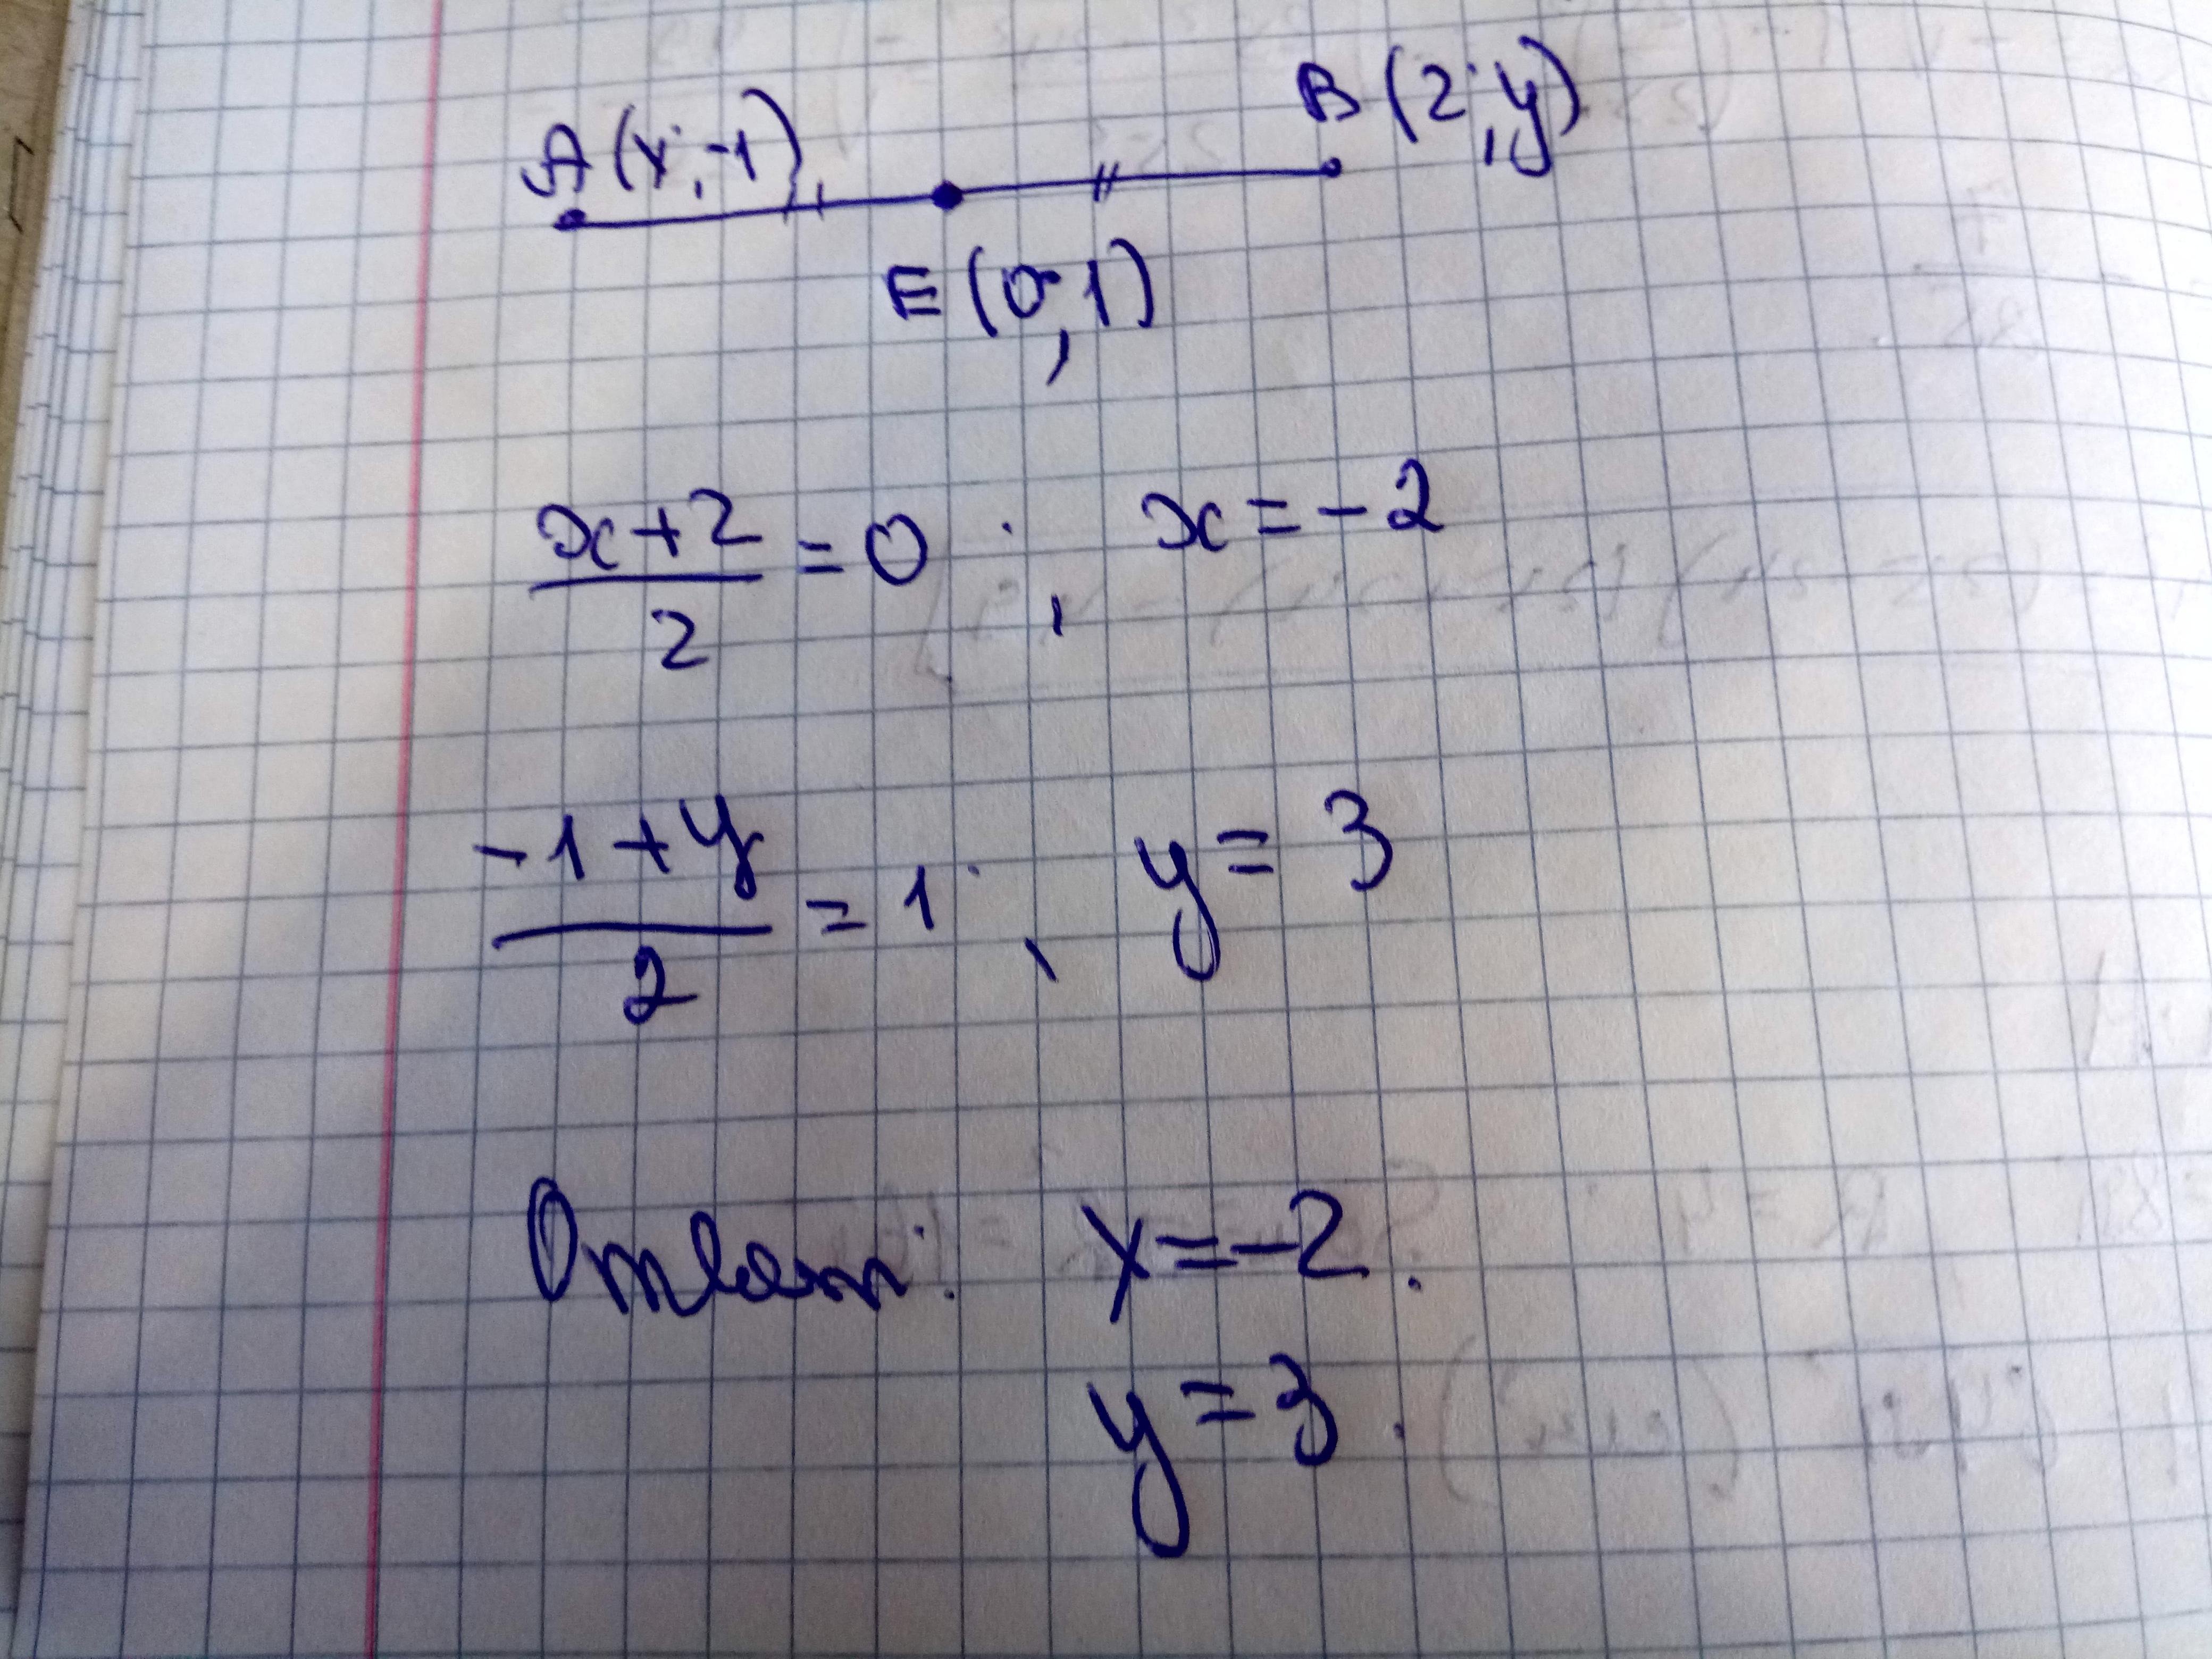 A(x;-1)
B(2;y)
E(0;1)
x+2
2
=0; x=-2
-1+y
2
=1; y=3
Ответ: x=-2.
y=3.